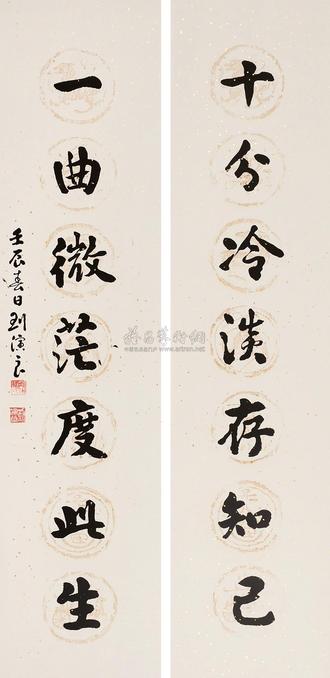 十分冷淡存知己
一曲微茫度此生
壬辰春日刘演良
雅昌艺术网